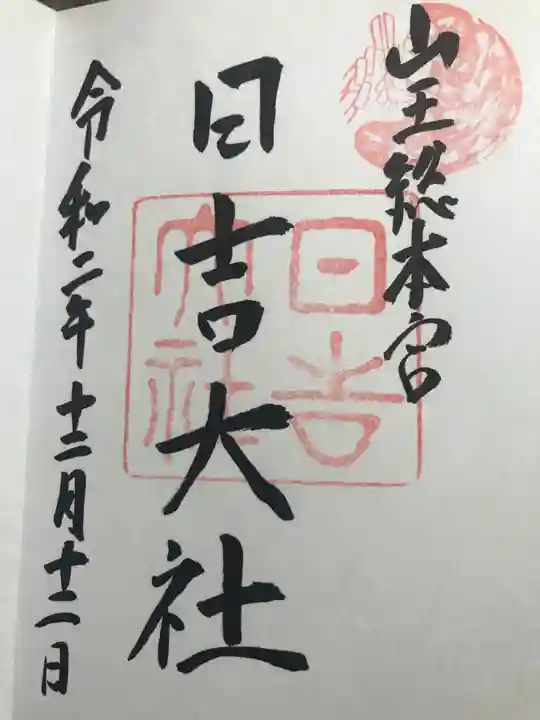 山王総本宮
日吉大社
日吉大社
令和二年十二月十二日